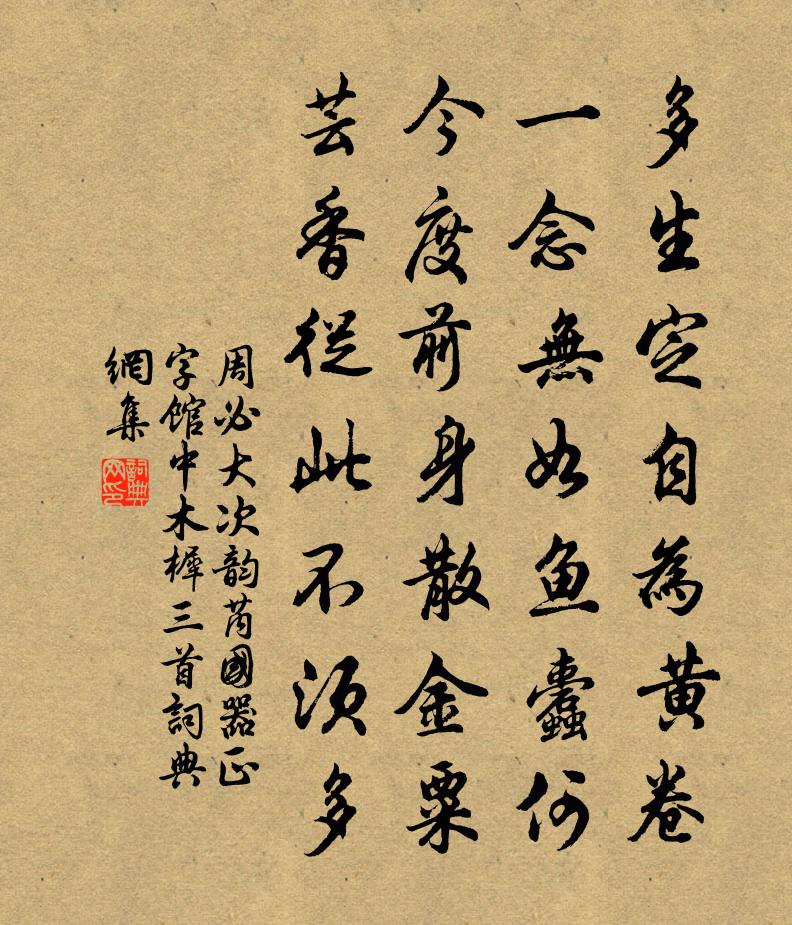 多生定自為黃卷
一念無如魚蠹何
今度前身散金粟
芸香從此不須多
周必大次韵芮國器正
字館中木樨三首詞典
網集
詞典网印